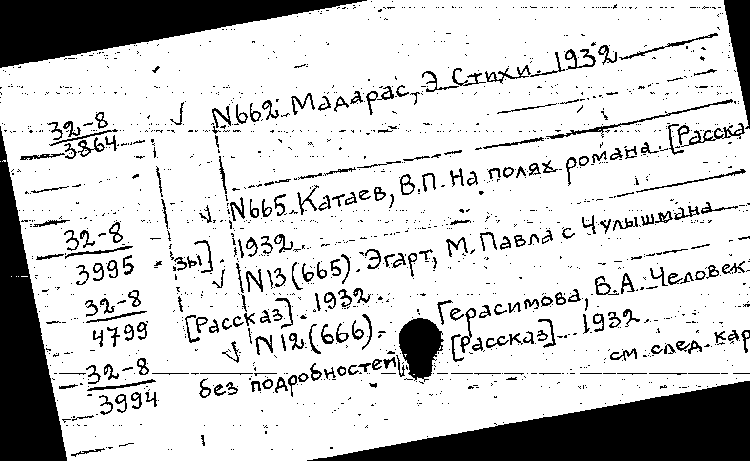 32-8
3864 √ N662. Мадарас, Э. Стихи. 1932
√ N665. Катаев, В.П. На полях романа. [Расска-
32-8
3995 зы]. 1932.
√ N13(665). Эгарт, М. Павла с Чулышмана
32-8
4799 [Рассказ]. 1932.
√ N12(666). Герасимова, В.А. Человек
32-8
3994 без подробностей [Рассказ]. 1932.
см. след. кар